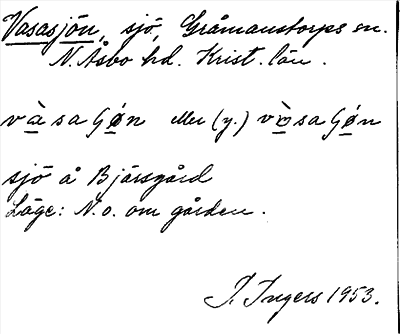 Vasasjön, sjö, Gråmanstorps sn.
N. Åsbo hd. Krist. län.
vàsaGǿn eller (y.) vòsaGǿn
sjö å Bjärsgård
Läge: N.o. om gården.
I. Ingers 1953.